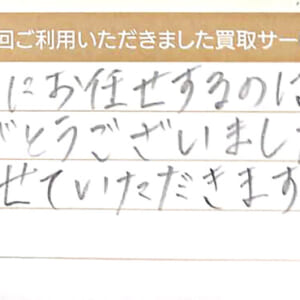 回ご利用いただきました買取サー
にお任せするのは
とうございまし
せていただきます